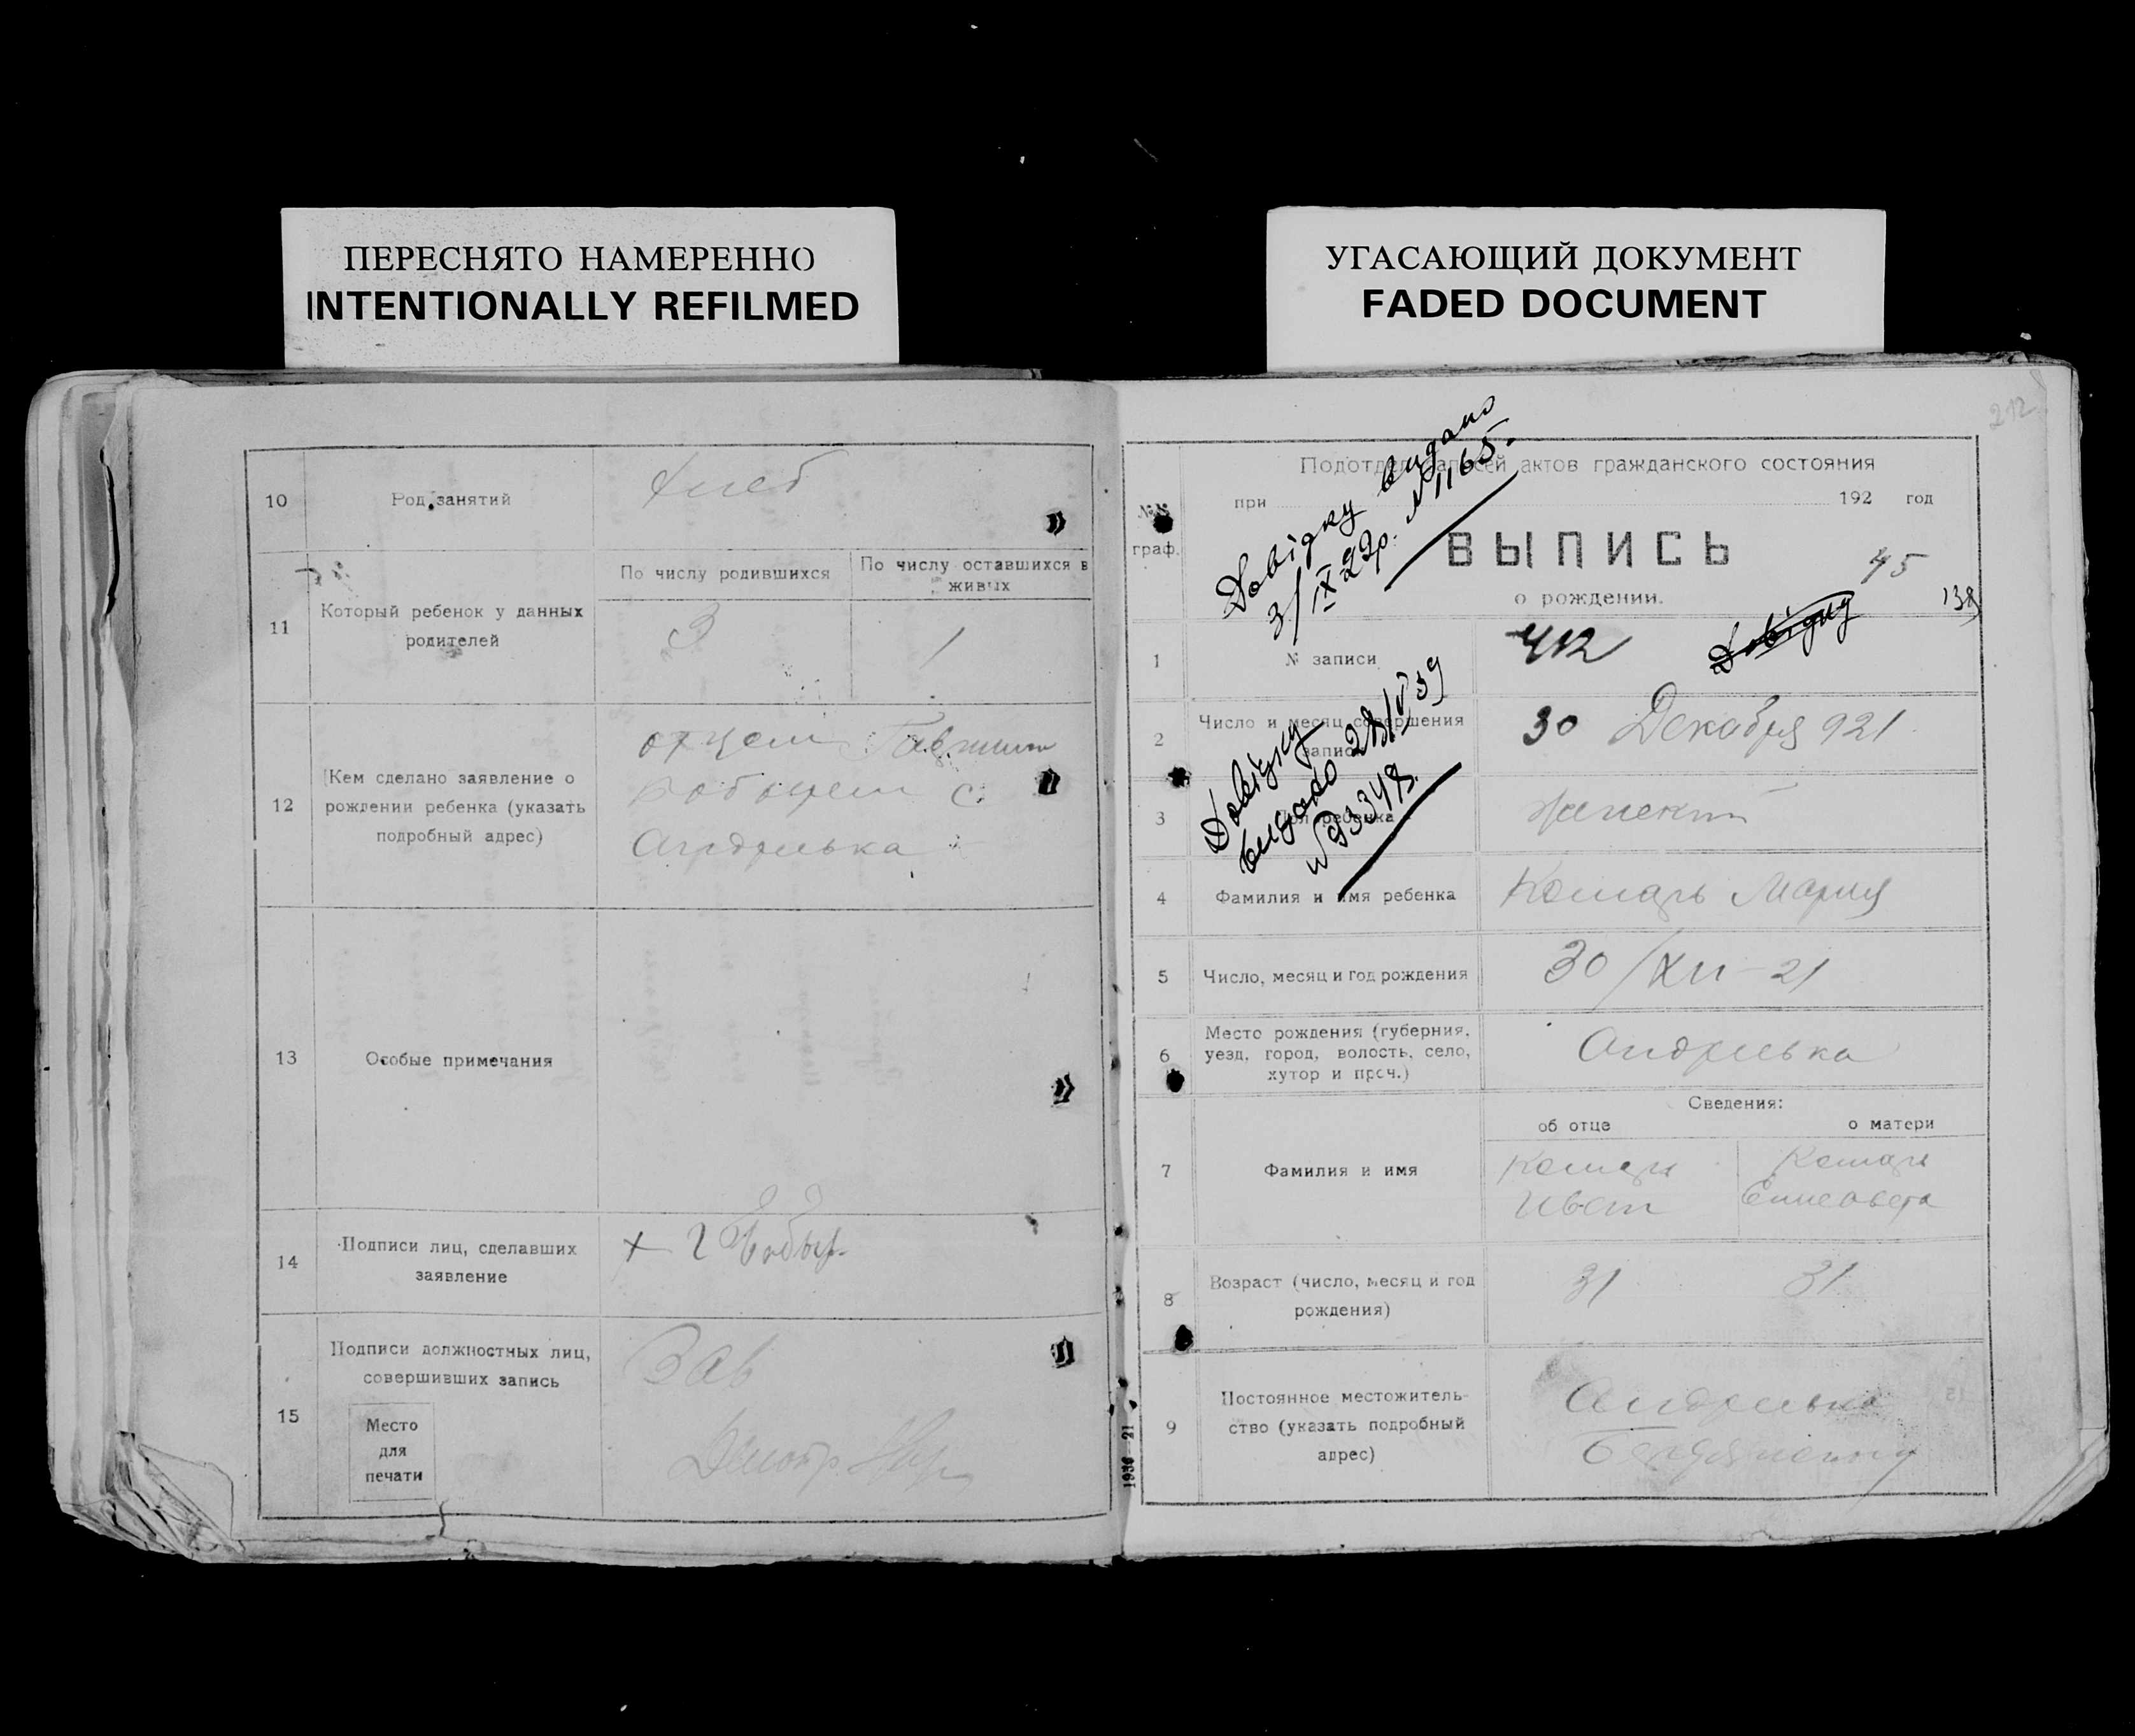 ПЕРЕСНЯТО НАМЕРЕННО
INTENTIONALLY REFILMED
УГАСАЮЩИЙ ДОКУМЕНТ
FADED DOCUMENT
10
Род занятий
хлеб
11
Который ребенок у данных
родителей
По числу родившихся
По числу оставшихся в
живых
3
1
12
Кем сделано заявление о
рождении ребенка (указать
подробный адрес)
отцем
с.
Андреевка
13
Особые примечания
14
Подписи лиц, сделавших
заявление
+
15
Подписи должностных лиц,
совершивших запись
Зав
Место
для
печати
212
Подотдел записей актов гражданского состояния
при 192 год
№№
граф.
ВЫПИСЬ
о рождении.
45
138
Довідку видано
3/IX 29р. № 1165.
Довідку
видано 28/V 39
№ 93348
1
№ записи
412
Довідку
2
Число и месяц совершения
записи
30 Декабря 921
3
Пол ребенка
женский
4
Фамилия и имя ребенка
Комарь Мария
5
Число, месяц и год рождения
30/XII-21
6
Место рождения (губерния,
уезд, город, волость, село,
хутор и проч.)
Андреевка
Сведения:
об отце
о матери
7
Фамилия и имя
Комарь
Иван
Комарь
Елисавета
8
Возраст (число, месяц и год
рождения)
31
31
9
Постоянное местожитель-
ство (указать подробный
адрес)
Андреевка
1936-21